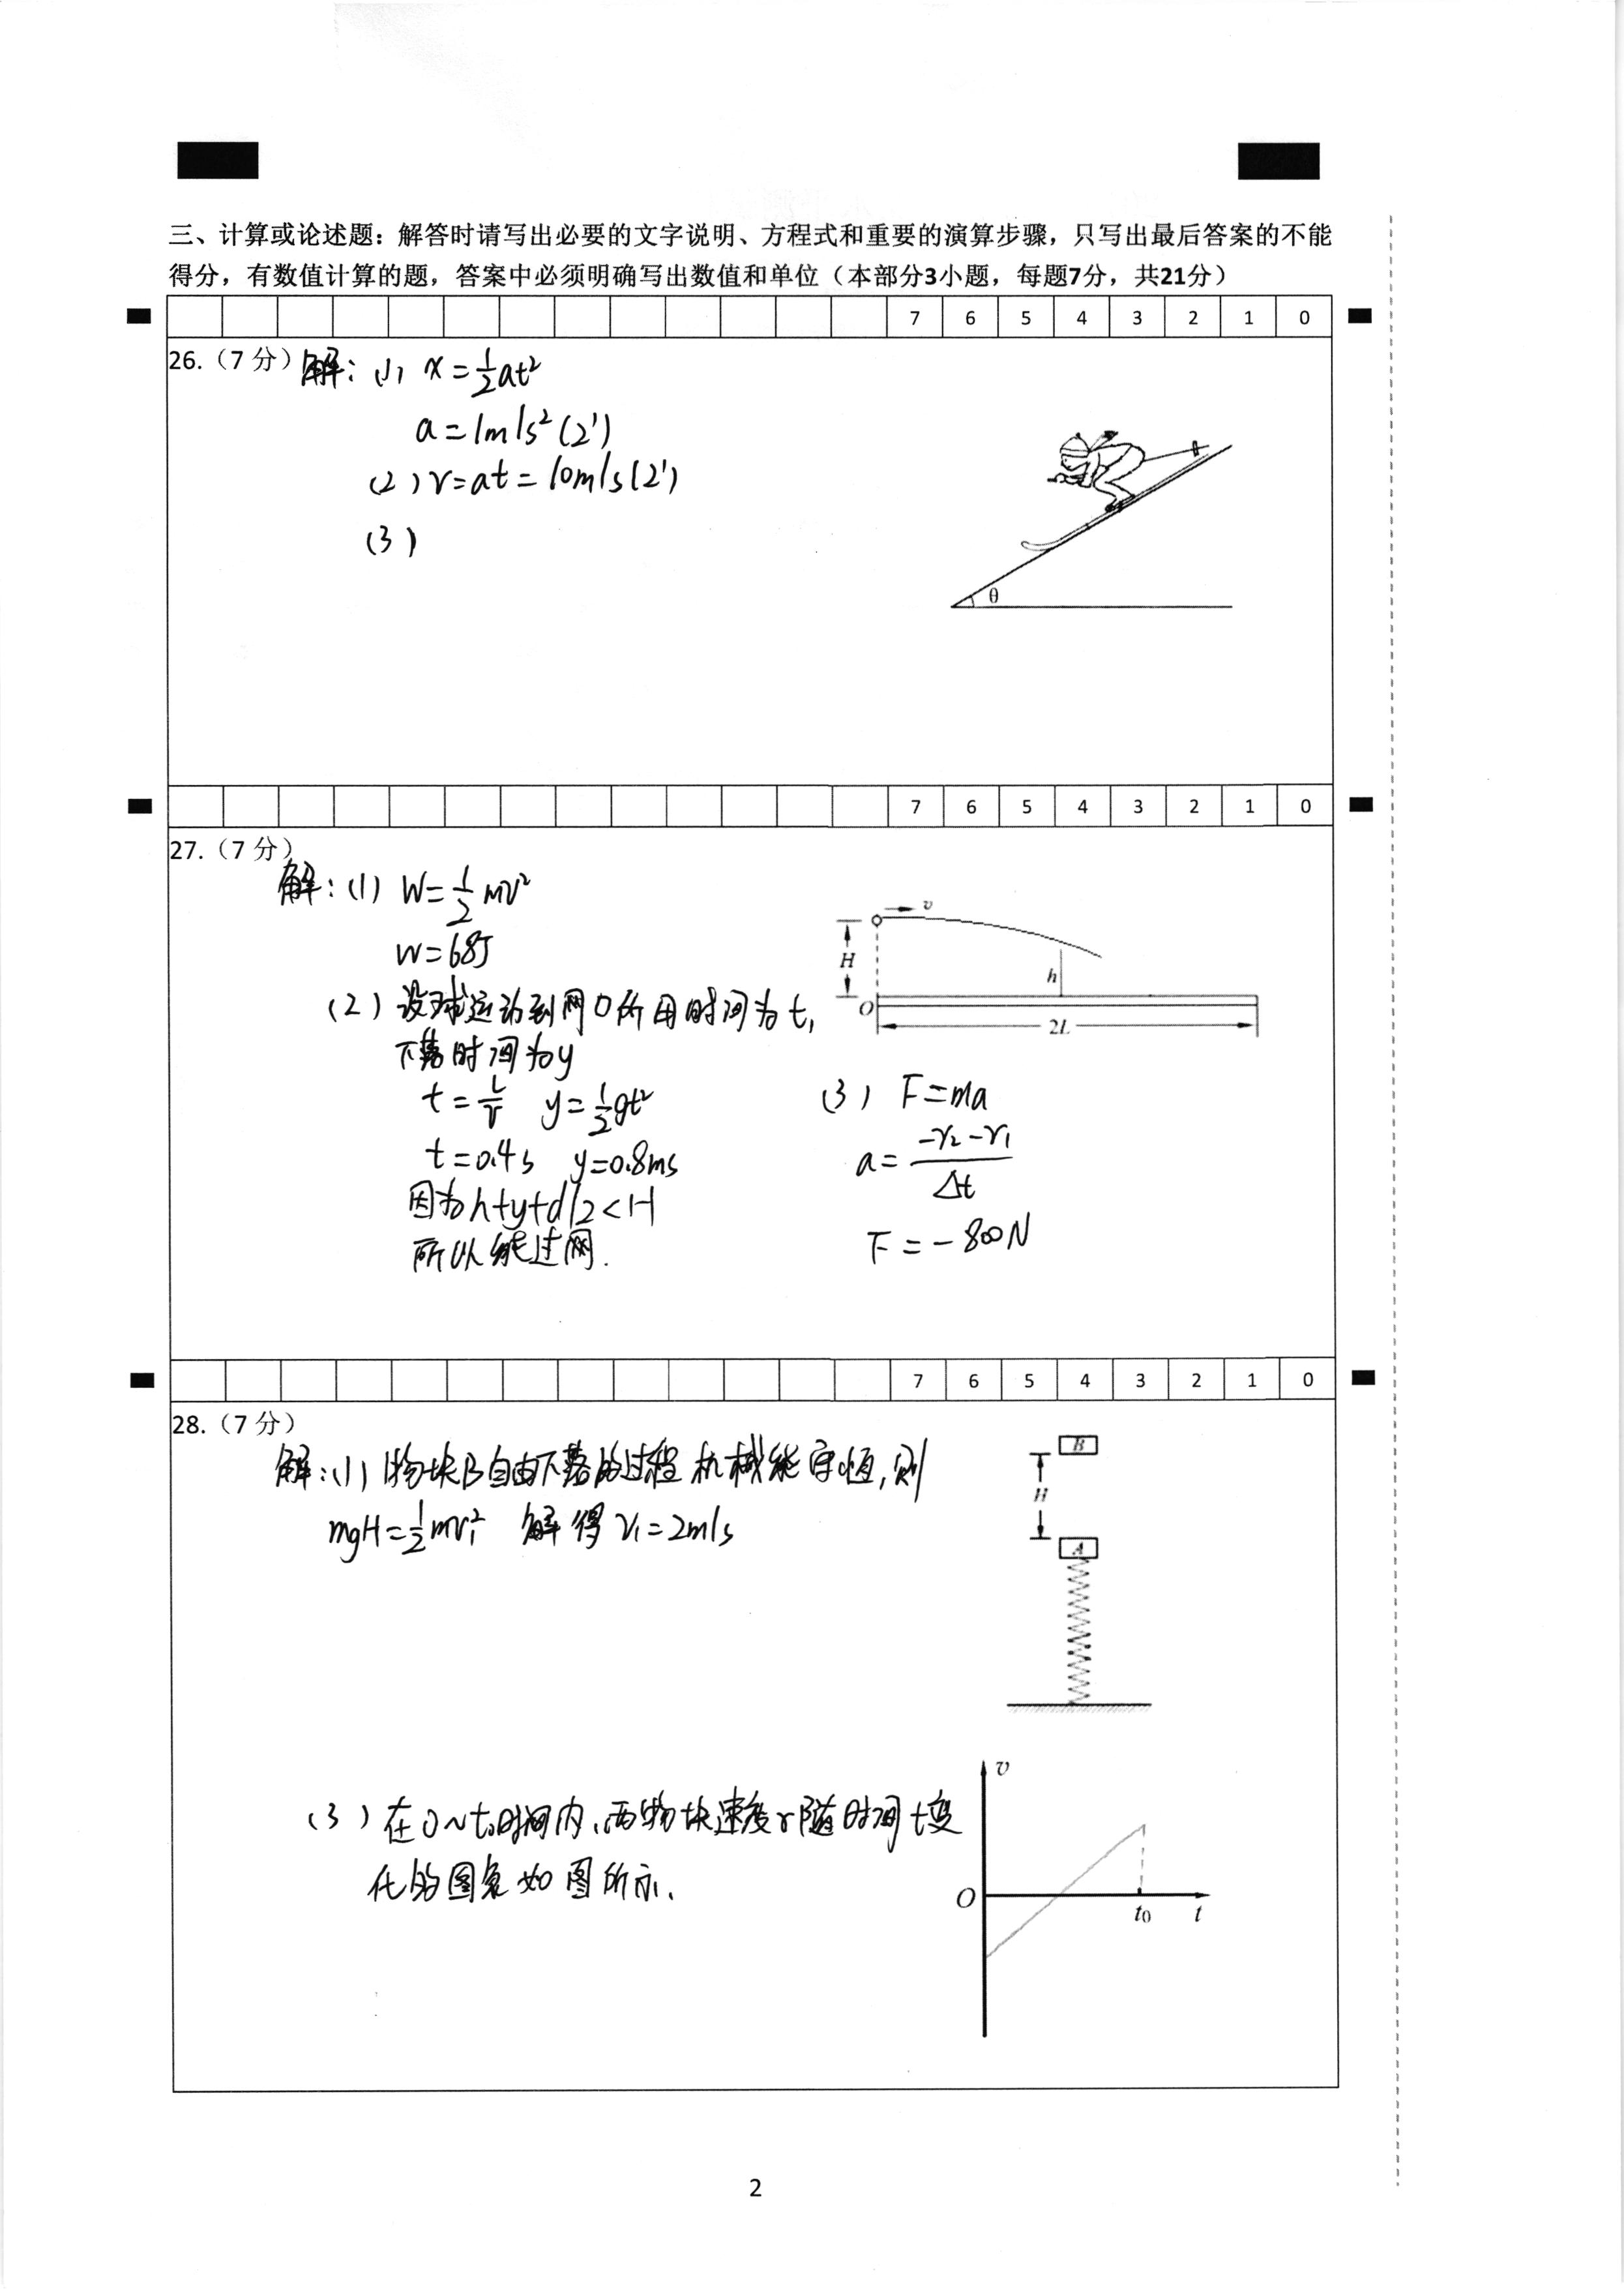 三、计算或论述题：解答时请写出必要的文字说明、方程式和重要的演算步骤，只写出最后答案的不能
得分，有数值计算的题，答案中必须明确写出数值和单位（本部分3小题，每题7分，共21分）
7 6 5 4 3 2 1 0
26.（7分）解：(1) x=½at²
a=1m/s²(2')
(2) v=at=10m/s(2')
(3)
θ
7 6 5 4 3 2 1 0
27.（7分）
解：(1) W=½mv²
W=68J
(2) 设球运动到网口所用时间为t,
下落时间为y
t=L/v y=½gt²
t=0.4s y=0.8ms
因为h+y+d/2<H
所以能过网.
v
H
h
O
2L
(3) F=ma
a=(-v₂-v₁)/Δt
F=-800N
7 6 5 4 3 2 1 0
28.（7分）
解：(1) 物块B自由下落的过程机械能守恒,则
mgH=½mv₁² 解得v₁=2m/s
B
H
A
(3) 在0~t₀时间内、两物块速度v随时间t变
化的图象如图所示、
v
O
t₀ t
2